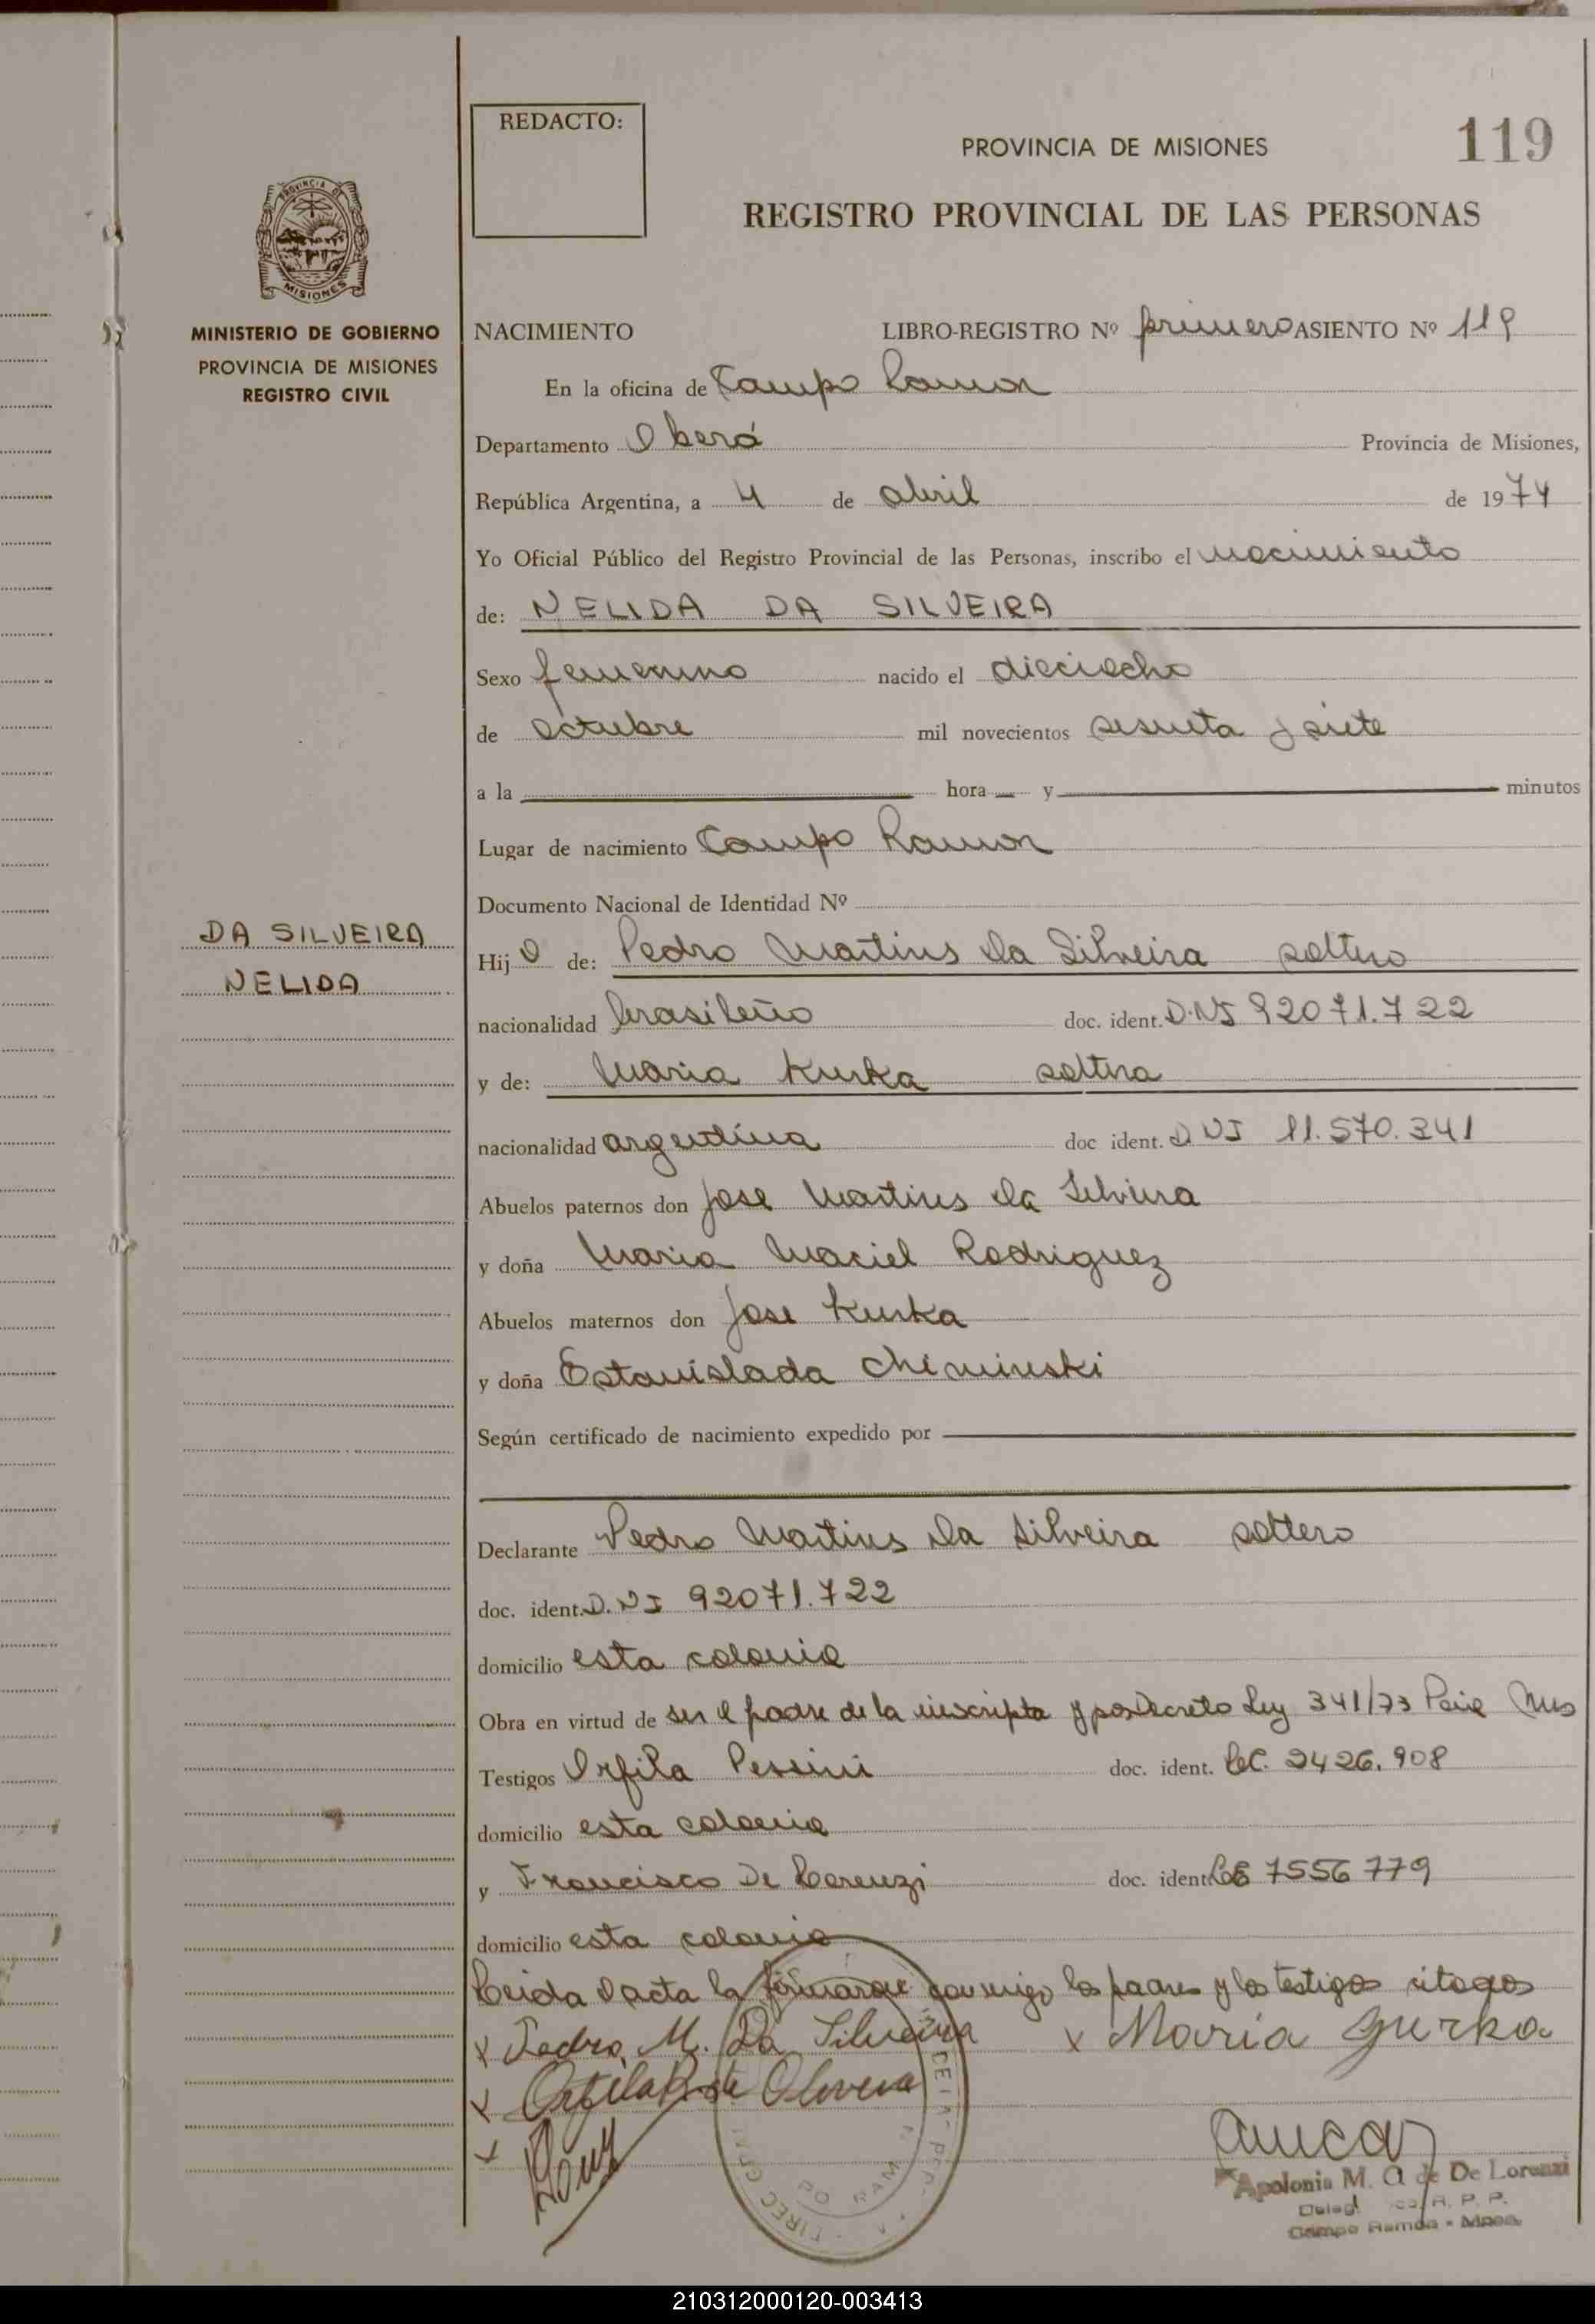 REDACTO:
PROVINCIA DE MISIONES
119
REGISTRO PROVINCIAL DE LAS PERSONAS
PROVINCIA DE
MISIONES
MINISTERIO DE GOBIERNO
PROVINCIA DE MISIONES
REGISTRO CIVIL
NACIMIENTO LIBRO-REGISTRO Nº primero ASIENTO Nº 119
En la oficina de Campo Ramon
Departamento Oberá Provincia de Misiones,
República Argentina, a 4 de abril de 1974
Yo Oficial Público del Registro Provincial de las Personas, inscribo el nacimiento
de: NELIDA DA SILVEIRA
Sexo femenino nacido el dieciocho
de octubre mil novecientos sesenta y siete
a la hora y minutos
Lugar de nacimiento Campo Ramon
Documento Nacional de Identidad Nº
DA SILVEIRA
NELIDA
Hij a de: Pedro Martins Da Silveira soltero
nacionalidad brasileño doc. ident. D.NI 92071.722
y de: Maria Kurka soltera
nacionalidad argentina doc ident. D NI 11.570.341
Abuelos paternos don Jose Martins da Silveira
y doña Maria Maciel Rodriguez
Abuelos maternos don Jose Kurka
y doña Estanislada Chiminski
Según certificado de nacimiento expedido por
Declarante Pedro Martins Da Silveira soltero
doc. ident. D.NI 92071.722
domicilio esta colonia
Obra en virtud de ser el padre de la inscripta y por Decreto Ley 341/73
Testigos Orfila Pessini doc. ident. LC. 2426.908
domicilio esta colonia
y Francisco De Lorenzi doc. ident. LE 7556779
domicilio esta colonia
Leida el acta la firmaron conmigo los padres y los testigos citados
x Pedro M. Da Silveira x Maria Gurka
x Orfila Olivera
x
Apolonia M. A de De Lorenzi
R. P. P.
Campo Ramón - Mnes.
210312000120-003413